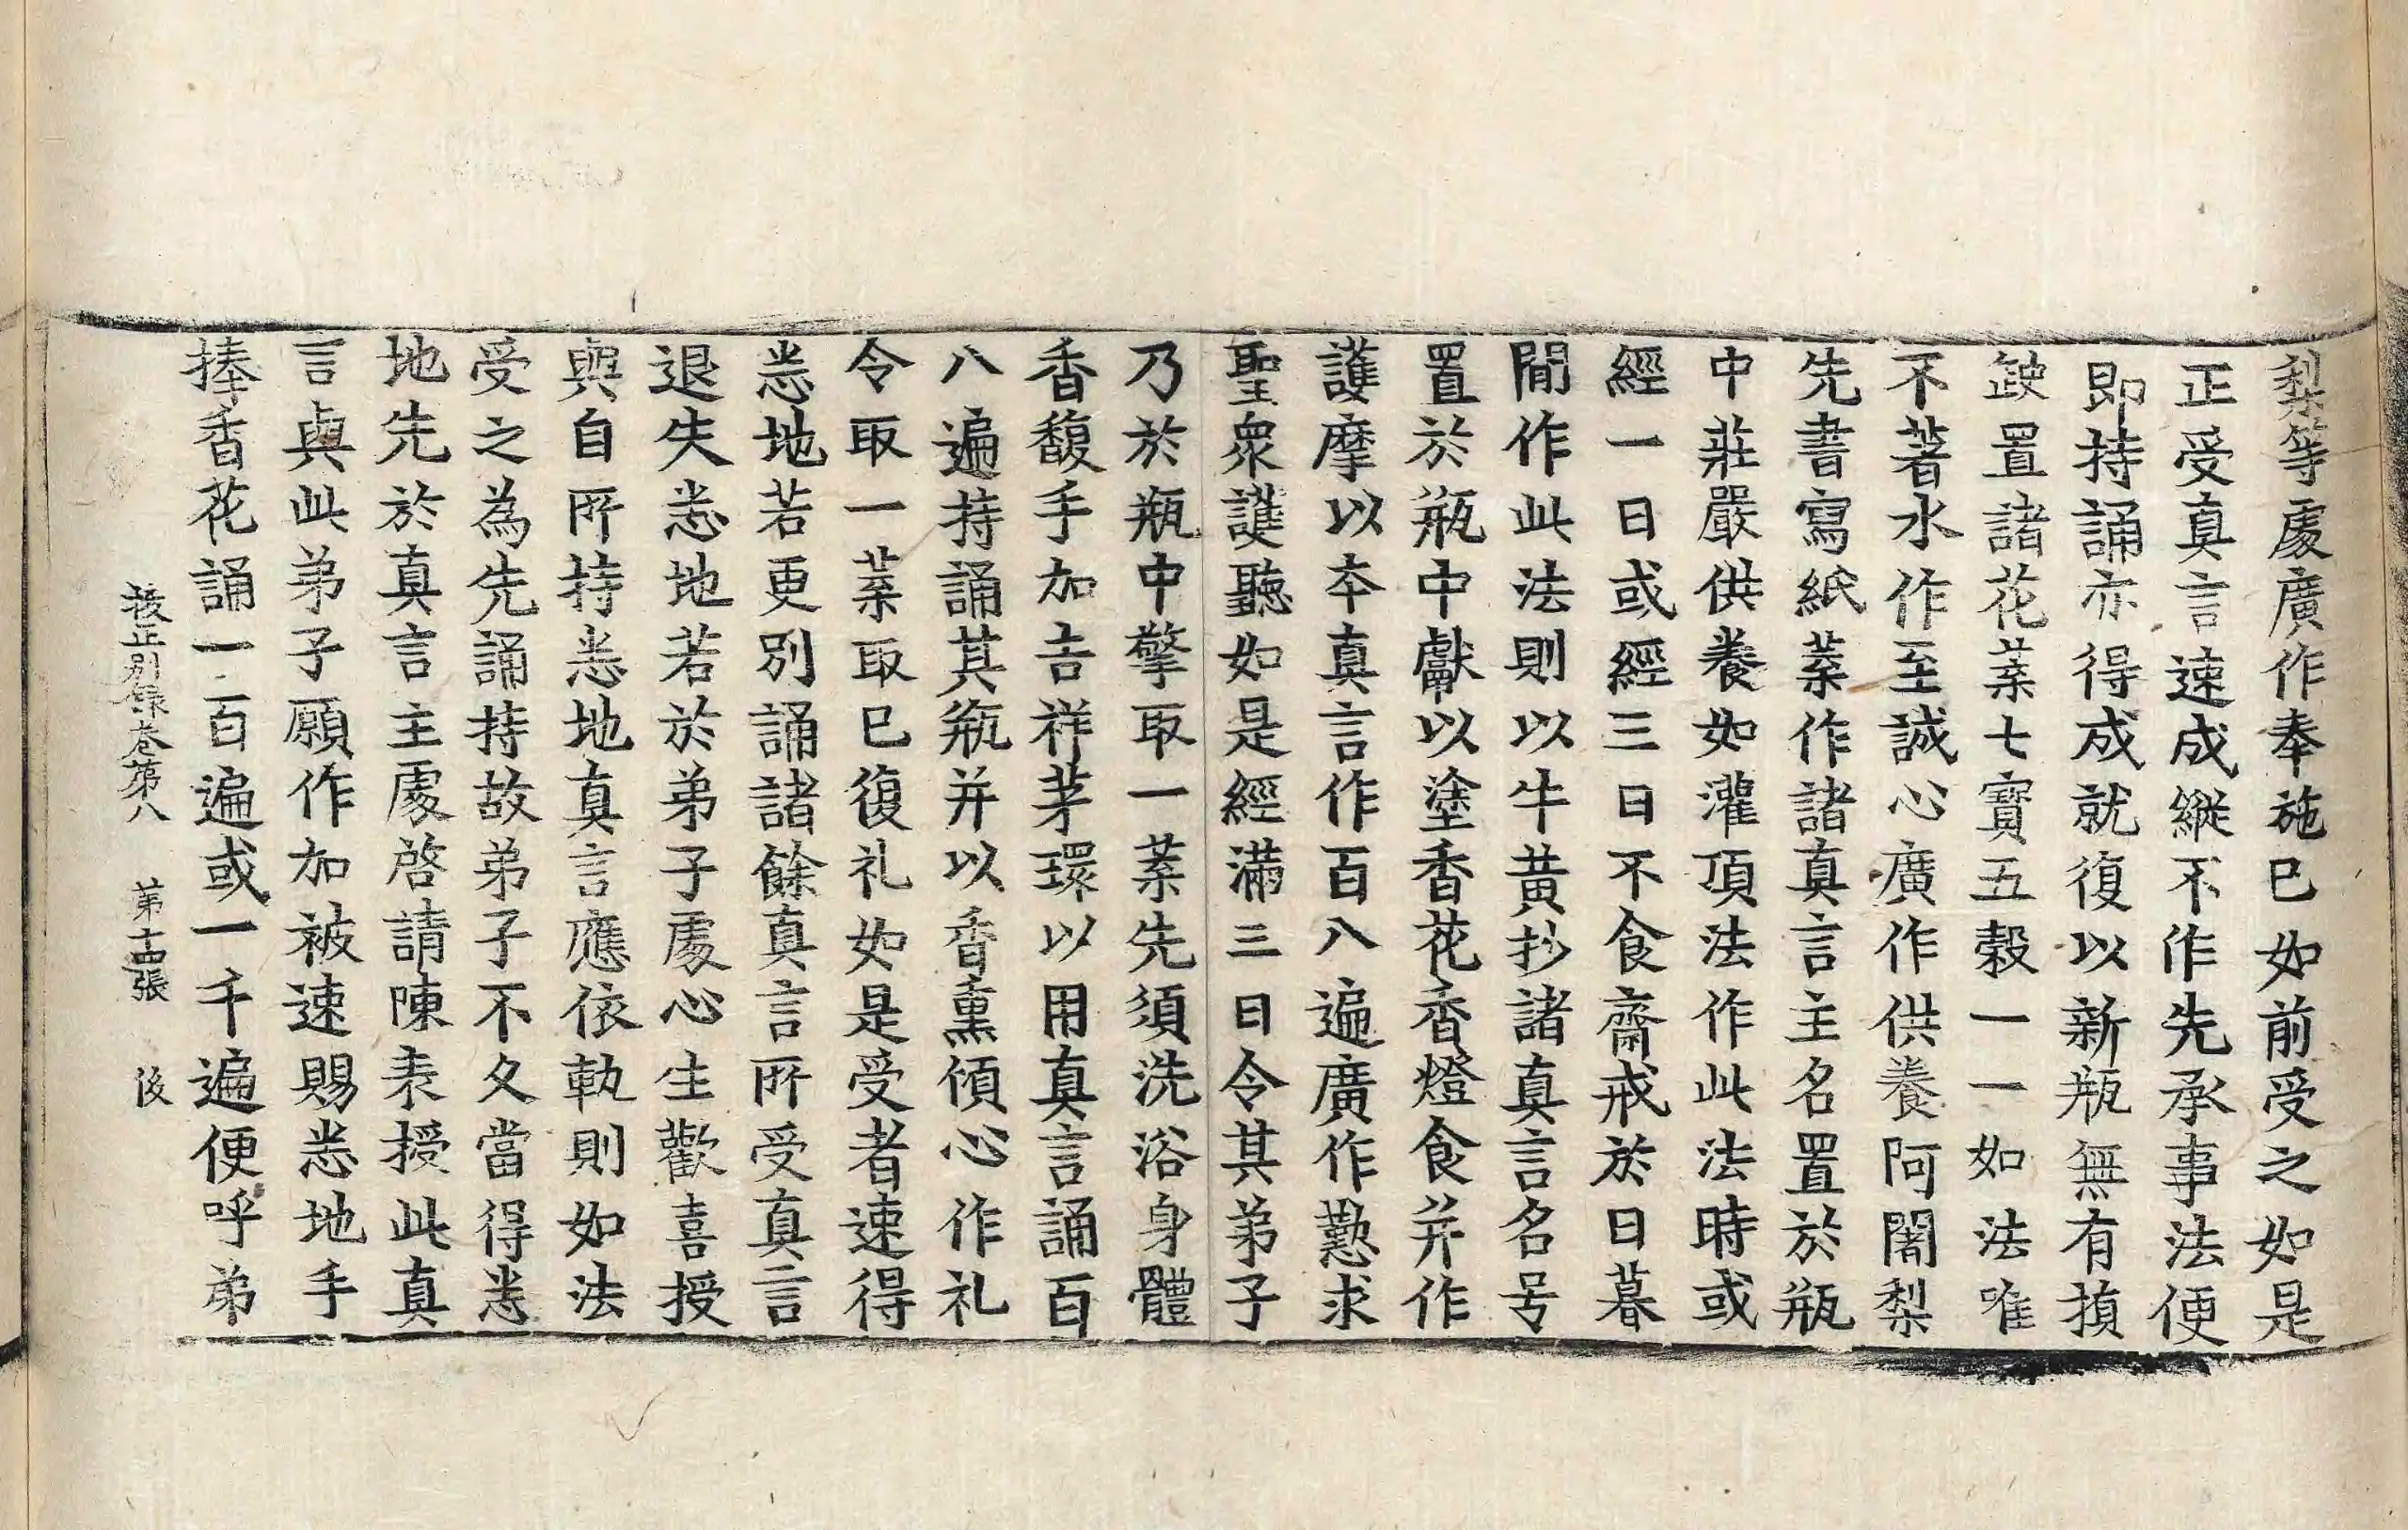 梨等處廣作奉施已如前受之如是
正受真言速成縱不作先承事法便
即持誦亦得成就復以新瓶無有損
缺置諸花葉七寶五穀一一如法唯
不著水作至誠心廣作供養阿闍梨
先書寫紙葉作諸真言主名置於瓶
中莊嚴供養如灌頂法作此法時或
經一日或經三日不食齋戒於日暮
間作此法則以牛黃抄諸真言名号
置於瓶中獻以塗香花香燈食并作
護摩以本真言作百八遍廣作懃求
聖衆護聽如是經滿三日令其弟子
乃於瓶中擎取一葉先須洗浴身體
香馥手加吉祥茅環以用真言誦百
八遍持誦其瓶并以香熏傾心作礼
令取一葉取已復礼如是受者速得
悉地若更別誦諸餘真言所受真言
退失悉地若於弟子處心生歡喜授
與自所持悉地真言應依軌則如法
受之為先誦持故弟子不久當得悉
地先於真言主處啓請陳表授此真
言與此弟子願作加被速賜悉地手
捧香花誦一百遍或一千遍便呼弟
校正別録卷第八　第十四張　後